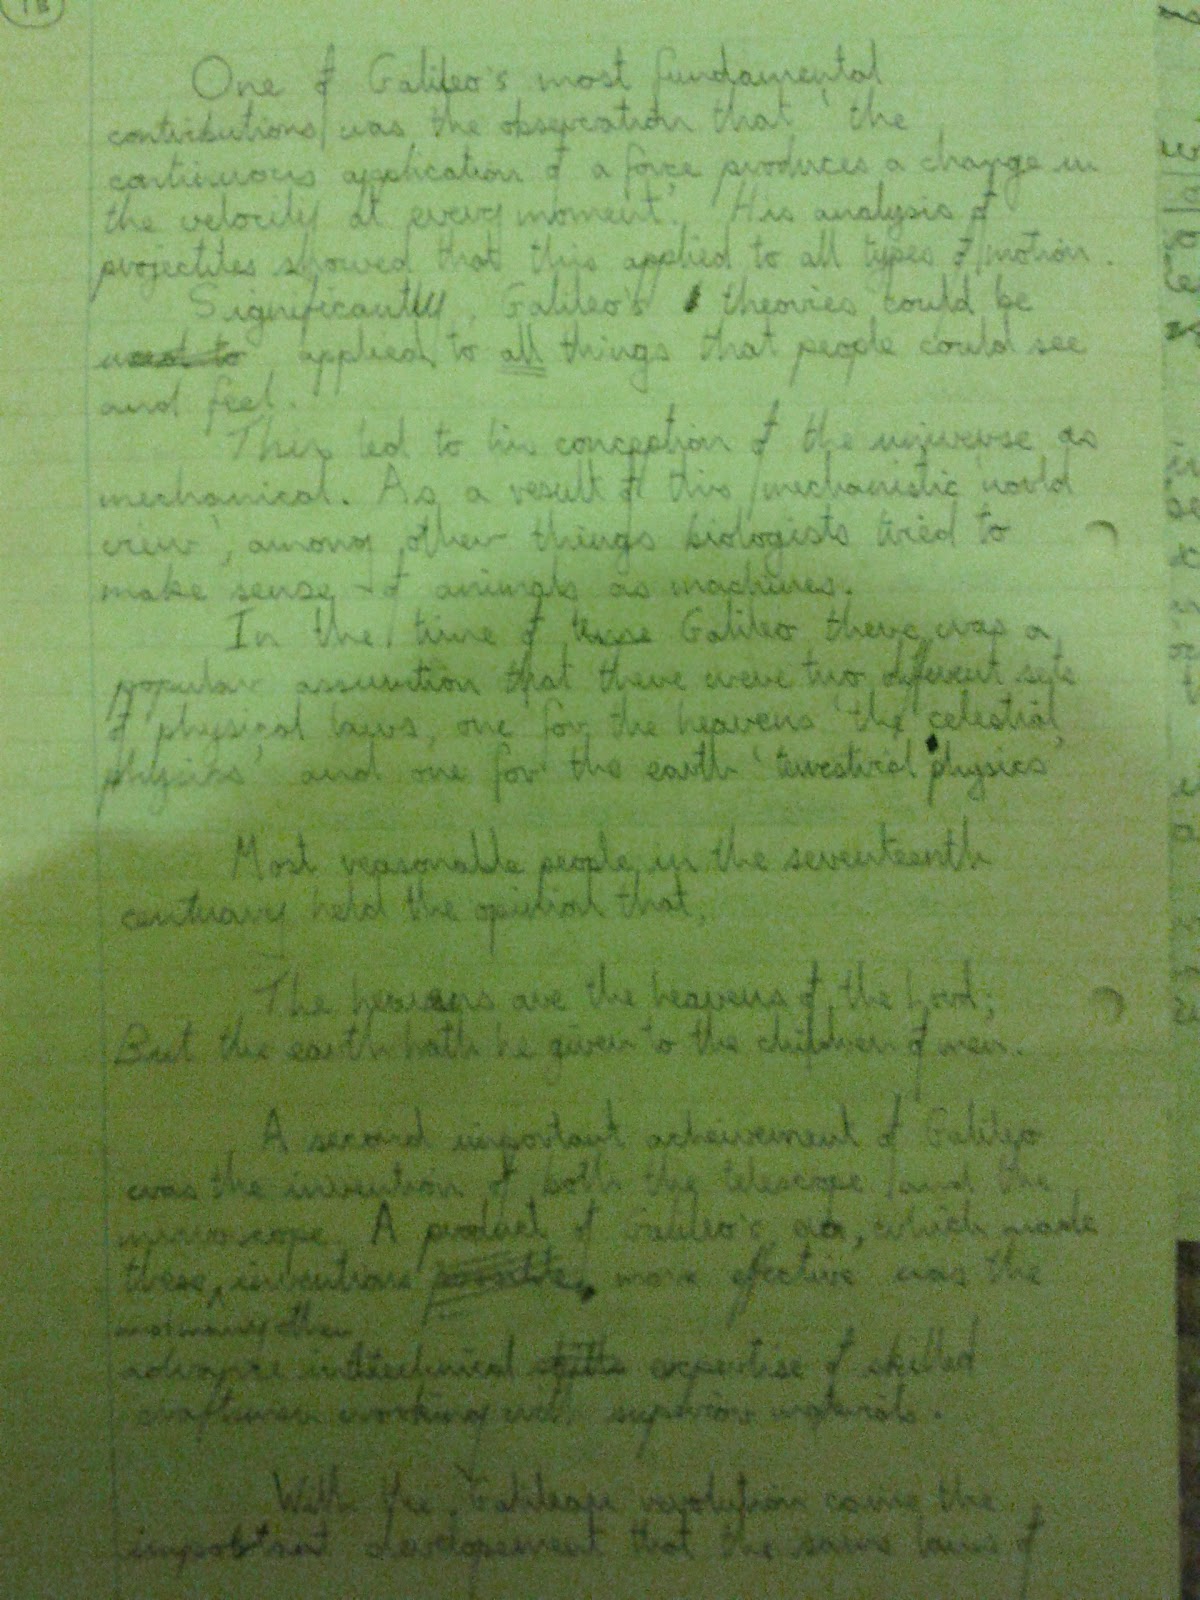 One of Galileo's most fundamental
contributions was the observation that 'the
continuous application of a force produces a change in
the velocity at every moment'. His analysis of
projectiles showed that this applied to all types of motion.
Significantly, Galileo's theories could be
used to applied to all things that people could see
and feel.
This led to his conception of the universe as
mechanical. As a result of this 'mechanistic world
view', among other things biologists tried to
make sense of animals as machines.
In the time of Galileo there was a
popular assumtion that there were two different sets
of physical laws, one for the heavens 'the celestial
physics' and one for the earth 'terrestrial physics'
Most reasonable people in the seventeenth
centuary held the opinion that,
The heavens are the heavens of the Lord;
But the earth hath he given to the children of men.
A second important acheivement of Galileo
was the invention of both the telescope and the
microscope. A product of Galileo's age, which made
these inventions possible, more effective was the
advance in technical skills expertise of skilled
craftsmen working with superior materials.
With the Galilean revolution came the
important developement that the same laws of